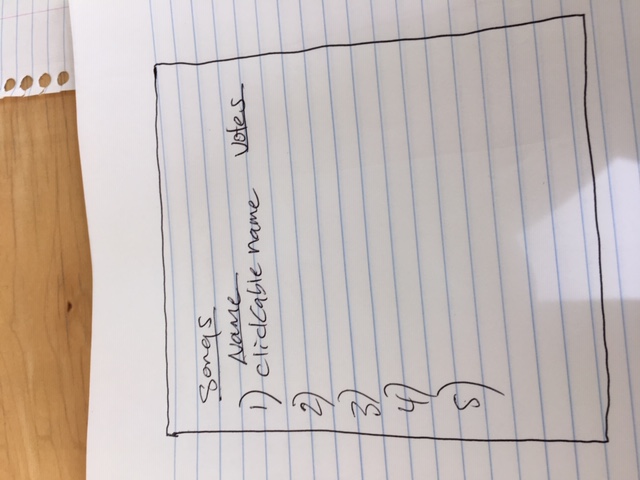 Songs
Name Votes
1) clickable name
2)
3)
4)
5)